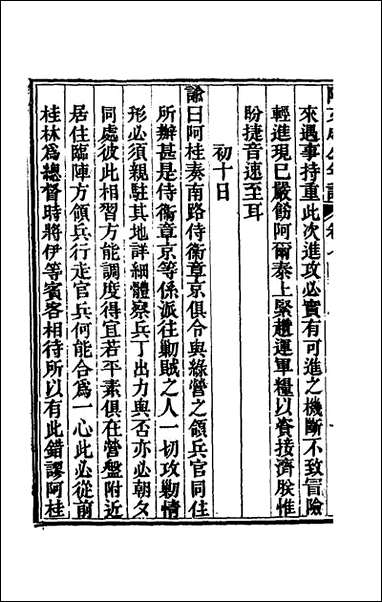 來遇事持重此次進攻必實有可進之機斷不致冒險
輕進現已嚴飭阿爾泰上緊趲運軍糧以資接濟朕惟
盼捷音速至耳
初十日
諭曰阿桂奏南路侍衛章京俱令與綠營之領兵官同住
所辦甚是侍衛章京等係派往勦賊之人一切攻勦情
形必須親駐其地詳細體察兵丁出力與否亦必朝夕
同處彼此相習方能調度得宜若平素俱在營盤附近
居住臨陣方領兵行走官兵何能合為一心此必從前
桂林為總督時將伊等賓客相待所以有此錯謬阿桂